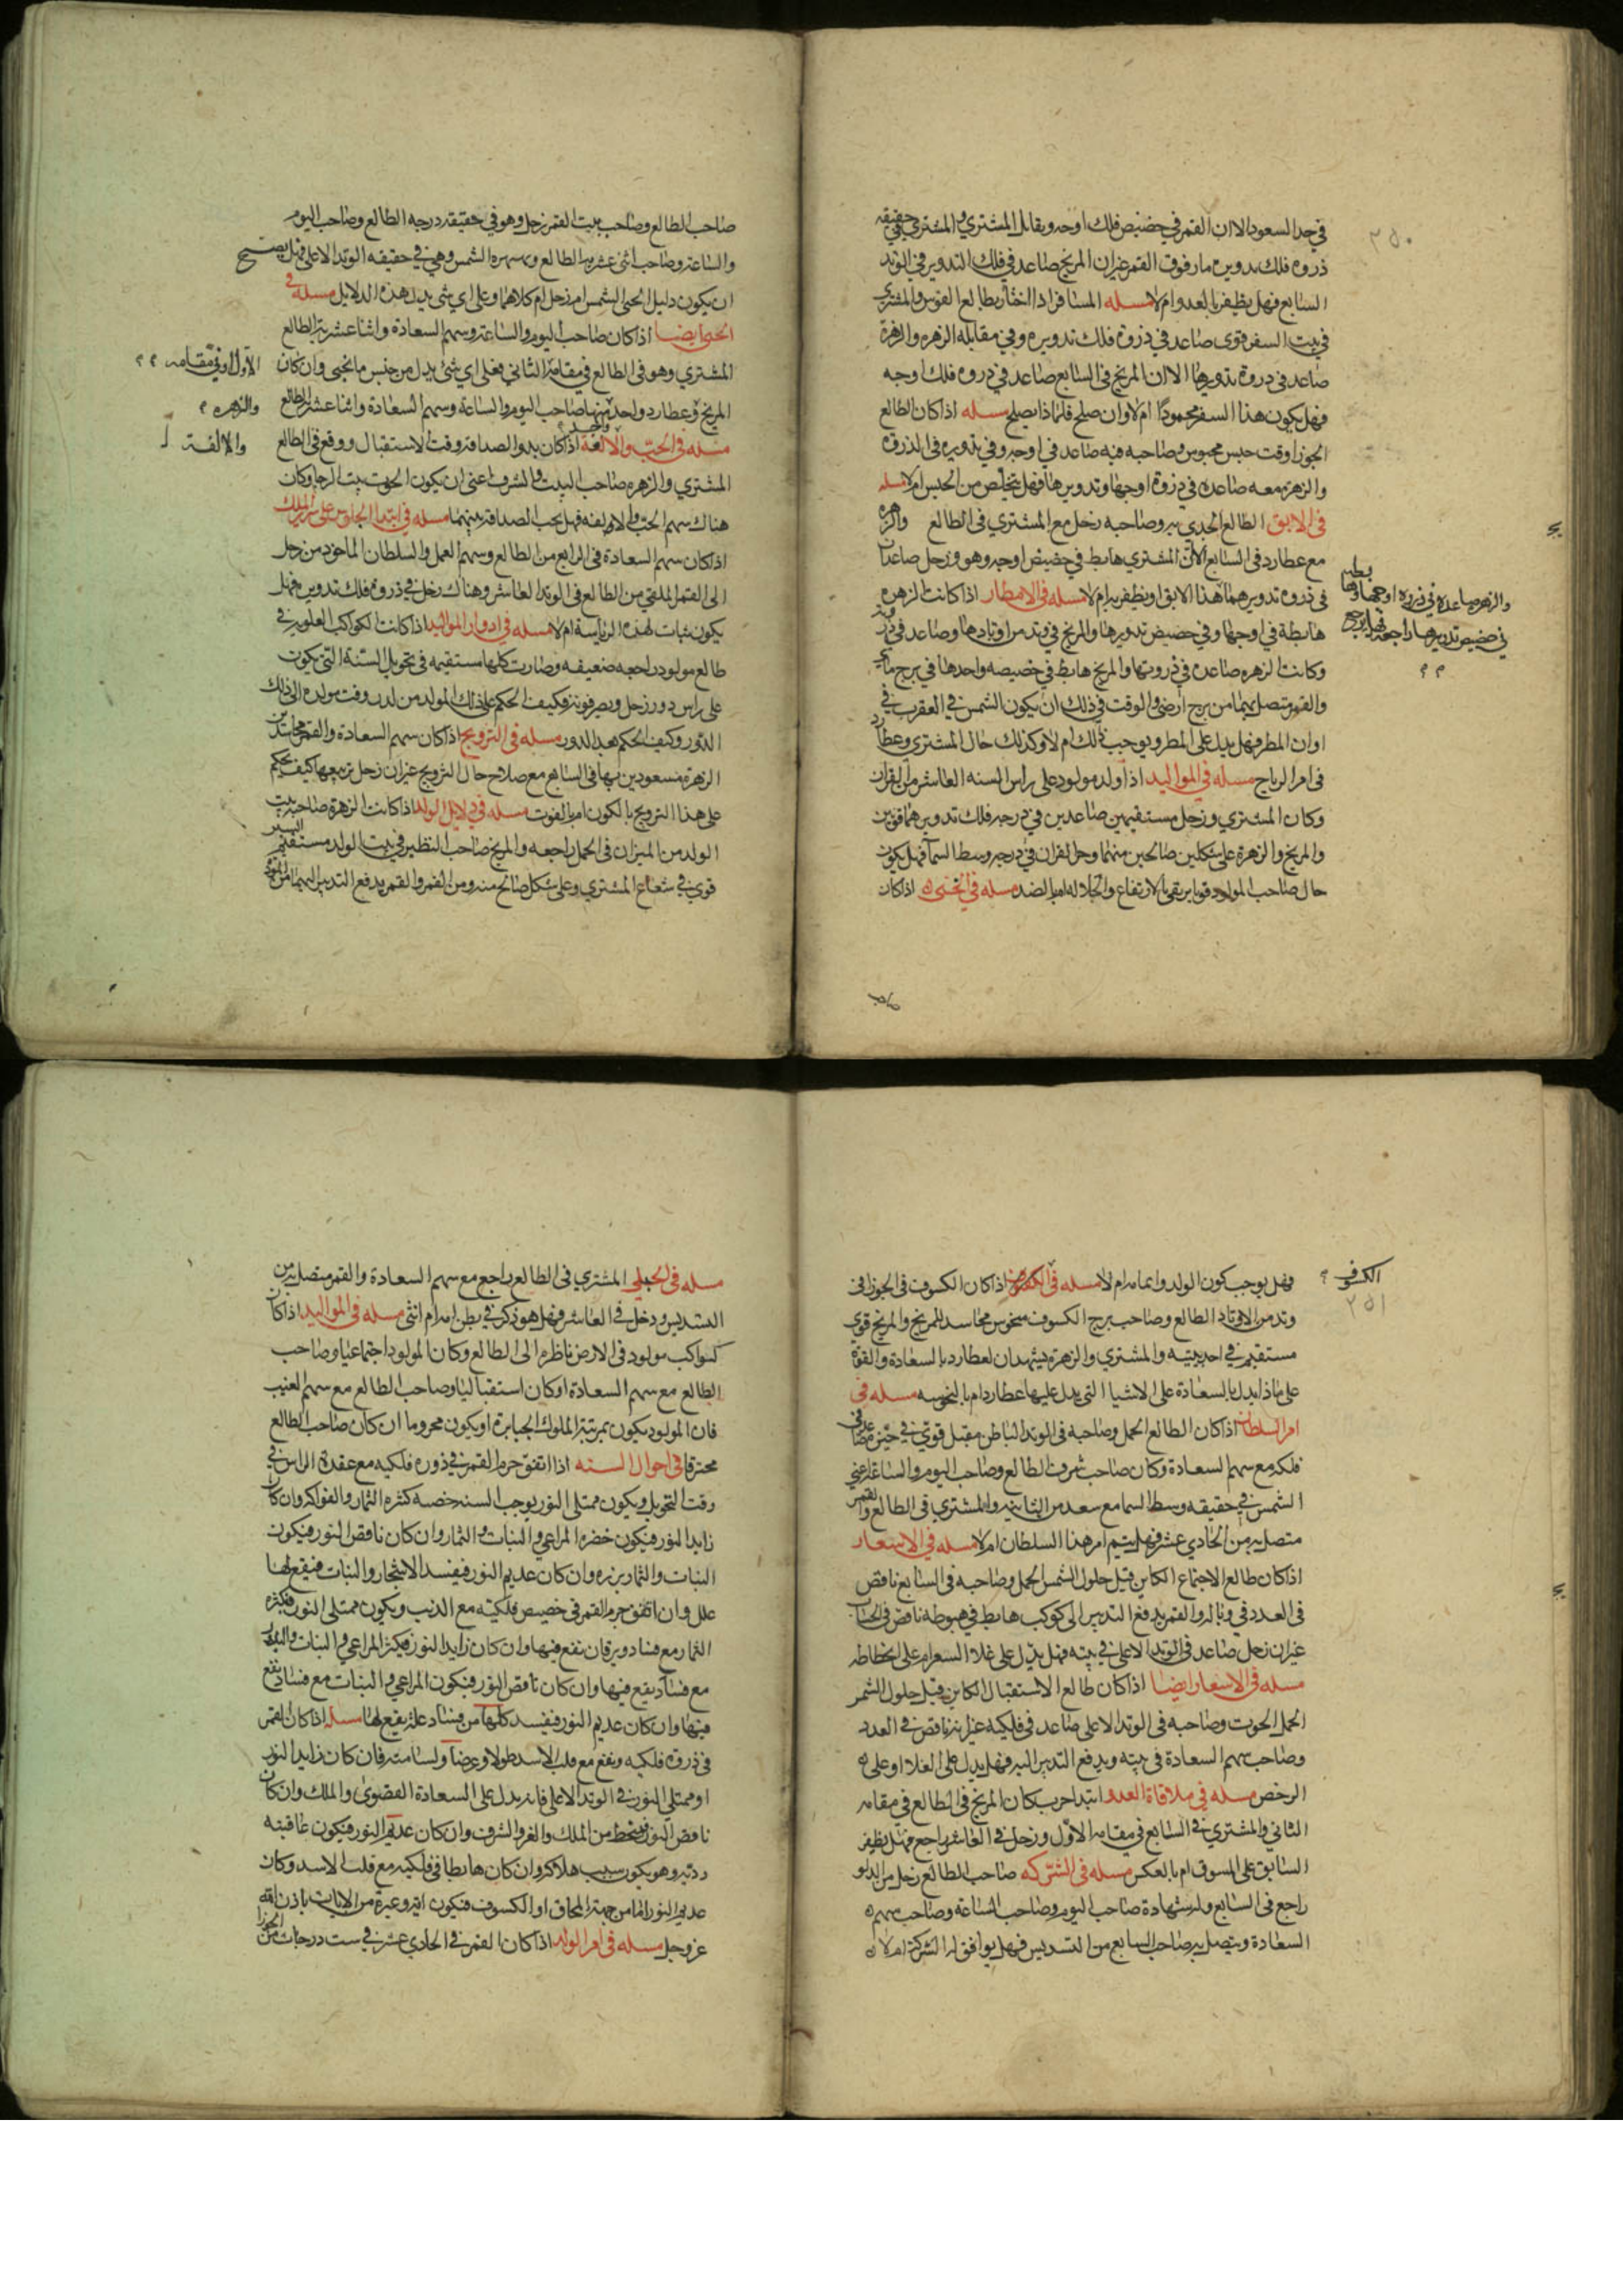 في حد السعود الا ان القمر في حضيض فلك اوجه ويقابل المشتري والمشتري في حقيقه
ذروه فلك تدويره مار فوق القمر غير ان المريخ صاعد في فلك التدوير في الوتد
السابع فهل يظفر بالعدو ام لا مسله المسافر اذا اختار بطالع القوس والمشتري
في بيت السفر قوى صاعد في ذروة فلك تدويره وفي مقابله الزهره والزهرة
صاعد في دروة تدويرها الا ان المريخ في السابع صاعد في دروه فلك اوجه
فهل يكون هذا السفر محمودا ام لا وان صلح فلماذا يصلح مسله اذا كان الطالع
الجوزا وقت حبس محبوس وصاحبه فيه صاعد في اوجه وفي تدويره في الذروه
والزهره معه صاعده في ذروة اوجها وتدويرها فهل يتخلص من الحبس ام لا مسله
في الابق الطالع الجدي وصاحبه زحل مع المشتري في الطالع والزهره
مع عطارد في السابع الا ان المشتري هابط في حضيض اوجه وهو وزحل صاعدان
في ذروه تدويرهما هذا الابق او يظفر به ام لا مسله في الامطار اذا كانت الزهره
هابطة في اوجها وفي حضيض تدويرها والمريخ في وتد من اوتادها وصاعد في
وكانت الزهره صاعده في ذروتها والمريخ هابط في حضيضه واحدها في برج مايي
والقمر متصل بهما من برج ارضي والوقت في ذلك ان يكون الشمس في العقرب في
اوان المطر فهل يدل على المطر ويوجب ذلك ام لا وكذلك حال المشتري وعطارد
في امر الرياح مسله في المواليد اذا ولد مولود على راس السنه العاشر من القران
وكان المشتري وزحل مستقيمين صاعدين في درجه فلك تدويرهما قويين
والمريخ والزهرة على شكلين صالحين منهما وحل القران في درجه وسط السما فهل يكون
حال صاحب المولود قويا يرتقي بالارتفاع والجلاله ام بالضد مسله في الخبي اذا كان
صاحب
والزهره صاعده في ذروه اوجها
في حضيض تدويرها راجعه فهل يرجع
٢٥٠
صاحب الطالع وصاحب بيت القمر زحل وهو في حقيقه درجه الطالع وصاحب اليوم
والساعه وصاحب اثني عشريه الطالع وسهمه الشمس وهي في حقيقه الوتد الاعلى فهل يصح
ان يكون دليل الخبي الشمس ام زحل ام كلاهما وعلى اي شي يدل هذه الدلايل مسله في
الخبي ايضا اذا كان صاحب اليوم والساعه وسهم السعادة واثنا عشرية الطالع
المشتري وهو في الطالع في مقامه الثاني فعلى اي شئ يدل من جنس ما تخبي وان كان
المريخ وعطارد واحد منهما صاحب اليوم والساعة وسهم السعادة واثنا عشر الطالع
مسله في الحب والالفة اذا كان بدو الصداقه وقت الاستقبال ووقع في الطالع
المشتري والزهره صاحب البيت والشرف اعني ان يكون الحوت بيت الرجا وكان
هناك سهم الحب والالفه فهل يجب الصداقه بينهما مسله في ابتدا الجلوس على سرير الملك
اذا كان سهم السعادة في الرابع من الطالع وسهم العمل والسلطان الماخوذ من زحل
الى القمر الملقى من الطالع في الوتد العاشر وهناك زحل في ذروة فلك تدويره فهل
يكون ثبات لهذه الرياسة ام لا مسله في ادوار المواليد اذا كانت الكواكب العلويه في
طالع مولود راجعه ضعيفه وصارت كلها مستقيمه في تحويل السنة التي يكون
على راس دور زحل ويصير قويه فكيف الحكم على ذلك المولد من لدن وقت مولده الى ذلك
الدور وكيف الحكم بعد الدور مسله في الترويج اذا كان سهم السعادة والقمر محاسدين
الزهرة مسعودين بها في السابع مع صلاح حال التزويج غير ان زحل تربيعها كيف يحكم
على هذا الترويج بالكون ام بالفوت مسله في دلايل الولد اذا كانت الزهرة صاحبه بيت
الولد من الميزان في الحمل راجعه والمريخ صاحب النظير في بيت الولد مستقيم السير
قوي في شعاع المشتري وعلى شكل صالح منه ومن القمر والقمر يدفع التدبير اليهما
الاول او في مقامه
والزهره
والالفة
فهل يوجب كون الولد واتمامه ام لا مسله في الكسوف اذا كان الكسوف في الجوزا في
وتد من الاوتاد الطالع وصاحب برج الكسوف منحوس محاسد للمريخ والمريخ قوي
مستقيم في احد بيتيه والمشتري والزهرة يشهدان لعطارد بالسعادة والقوة
على ماذا يدل بالسعادة على الاشيا التي يدل عليها عطارد ام بالنحوسه مسله في
امر السلطان اذا كان الطالع الحمل وصاحبه في الوتد الباطن مقبل قوي في حيزه صاعد في
فلكه مع سهم السعادة وكان صاحب شرف الطالع وصاحب اليوم والساعه اعني
الشمس في حقيقه وسط السما مع سعد من الثابته والمشتري في الطالع والقمر
متصل به من الحادي عشر فهل يتم امر هذا السلطان ام لا مسله في الاسعار
اذا كان طالع الاجتماع الكاين قبل حلول الشمس الحمل وصاحبه في السابع ناقص
في العدد في وباله والقمر يدفع التدبير الى كوكب هابط في هبوطه ناقص في الحساب
غير ان زحل صاعد في الوتد الاعلى في بيته فهل يدل على غلا السعر ام على انحطاطه
مسله في الاسعار ايضا اذا كان طالع الاستقبال الكاين قبل حلول الشمس
الحمل الحوت وصاحبه في الوتد الاعلى صاعد في فلكيه غير انه ناقص في العدد
وصاحب سهم السعادة في بيته ويدفع التدبير اليه فهل يدل على الغلا او على
الرخص مسله في ملاقاة العدو ابتدا حرب كان المريخ في الطالع في مقامه
الثاني والمشتري في السابع في مقامه الاول وزحل في العاشر راجع فهل يظفر
السابق على المسبوق ام بالعكس مسله في الشركه صاحب الطالع زحل من الدلو
راجع في السابع وله شهادة صاحب اليوم وصاحب الساعة وصاحب سهم
السعادة ويتصل به صاحب السابع من التسديس فهل يوافق له الشركة ام لا
الكسوف
٢٥١
مسله في الحبلى المشتري في الطالع راجع مع سهم السعادة والقمر متصل به من
التسديس وزحل في العاشر فهل هو ذكر في بطن امه ام انثى مسله في المواليد اذا كان
كواكب مولود في الارض ناظره الى الطالع وكان المولود اجتماعيا وصاحب
الطالع مع سهم السعادة او كان استقباليا وصاحب الطالع مع سهم الغيب
فان المولود يكون بمرتبة الملوك الجبابرة او يكون محروما ان كان صاحب الطالع
محترقا في احوال السنه اذا اتفق جرم القمر في ذروه فلكيه مع عقدة الراس في
وقت التحويل ويكون ممتلى النور يوجب السنه خصبه كثره الثمار والفواكه وان كان
زايد النور فيكون خضره المراعي والنبات والثمار وان كان ناقص النور فيكون
النبات والثمار نزره وان كان عديم النور فيفسد الاشجار والنبات فيقع لها
علل وان اتفق جرم القمر في حضيض فلكيه مع الذنب ويكون ممتلى النور فيكثر
الثمار مع فساد ويرقان يقع فيها وان كان زايد النور فيكثر المراعي والنبات
مع فساد يقع فيها وان كان ناقص النور فيكون المراعي والنبات مع فساد يقع
فيها وان كان عديم النور فيفسد كلها من فساد علة يقع لها مسله اذا كان القمر
في ذروه فلكيه ويقع مع قلب الاسد طولا وعرضا ولسامته فان كان زايد النور
او ممتلي النور في الوتد الاعلى فانه يدل على السعادة القصوى والملك وان كان
ناقص النور فيحط من الملك والعز والشرف وان كان عديم النور فيكون عاقبته
رديه وهو يكون سبب هلاكه وان كان هابطا في فلكيه مع قلب الاسد وكان
عديم النور اما من جهة المحاق او الكسوف فيكون اية وعبرة من الايات باذن الله
عز وجل مسله في امر الولد اذا كان القمر في الحادي عشر في ست درجات من الجوزا